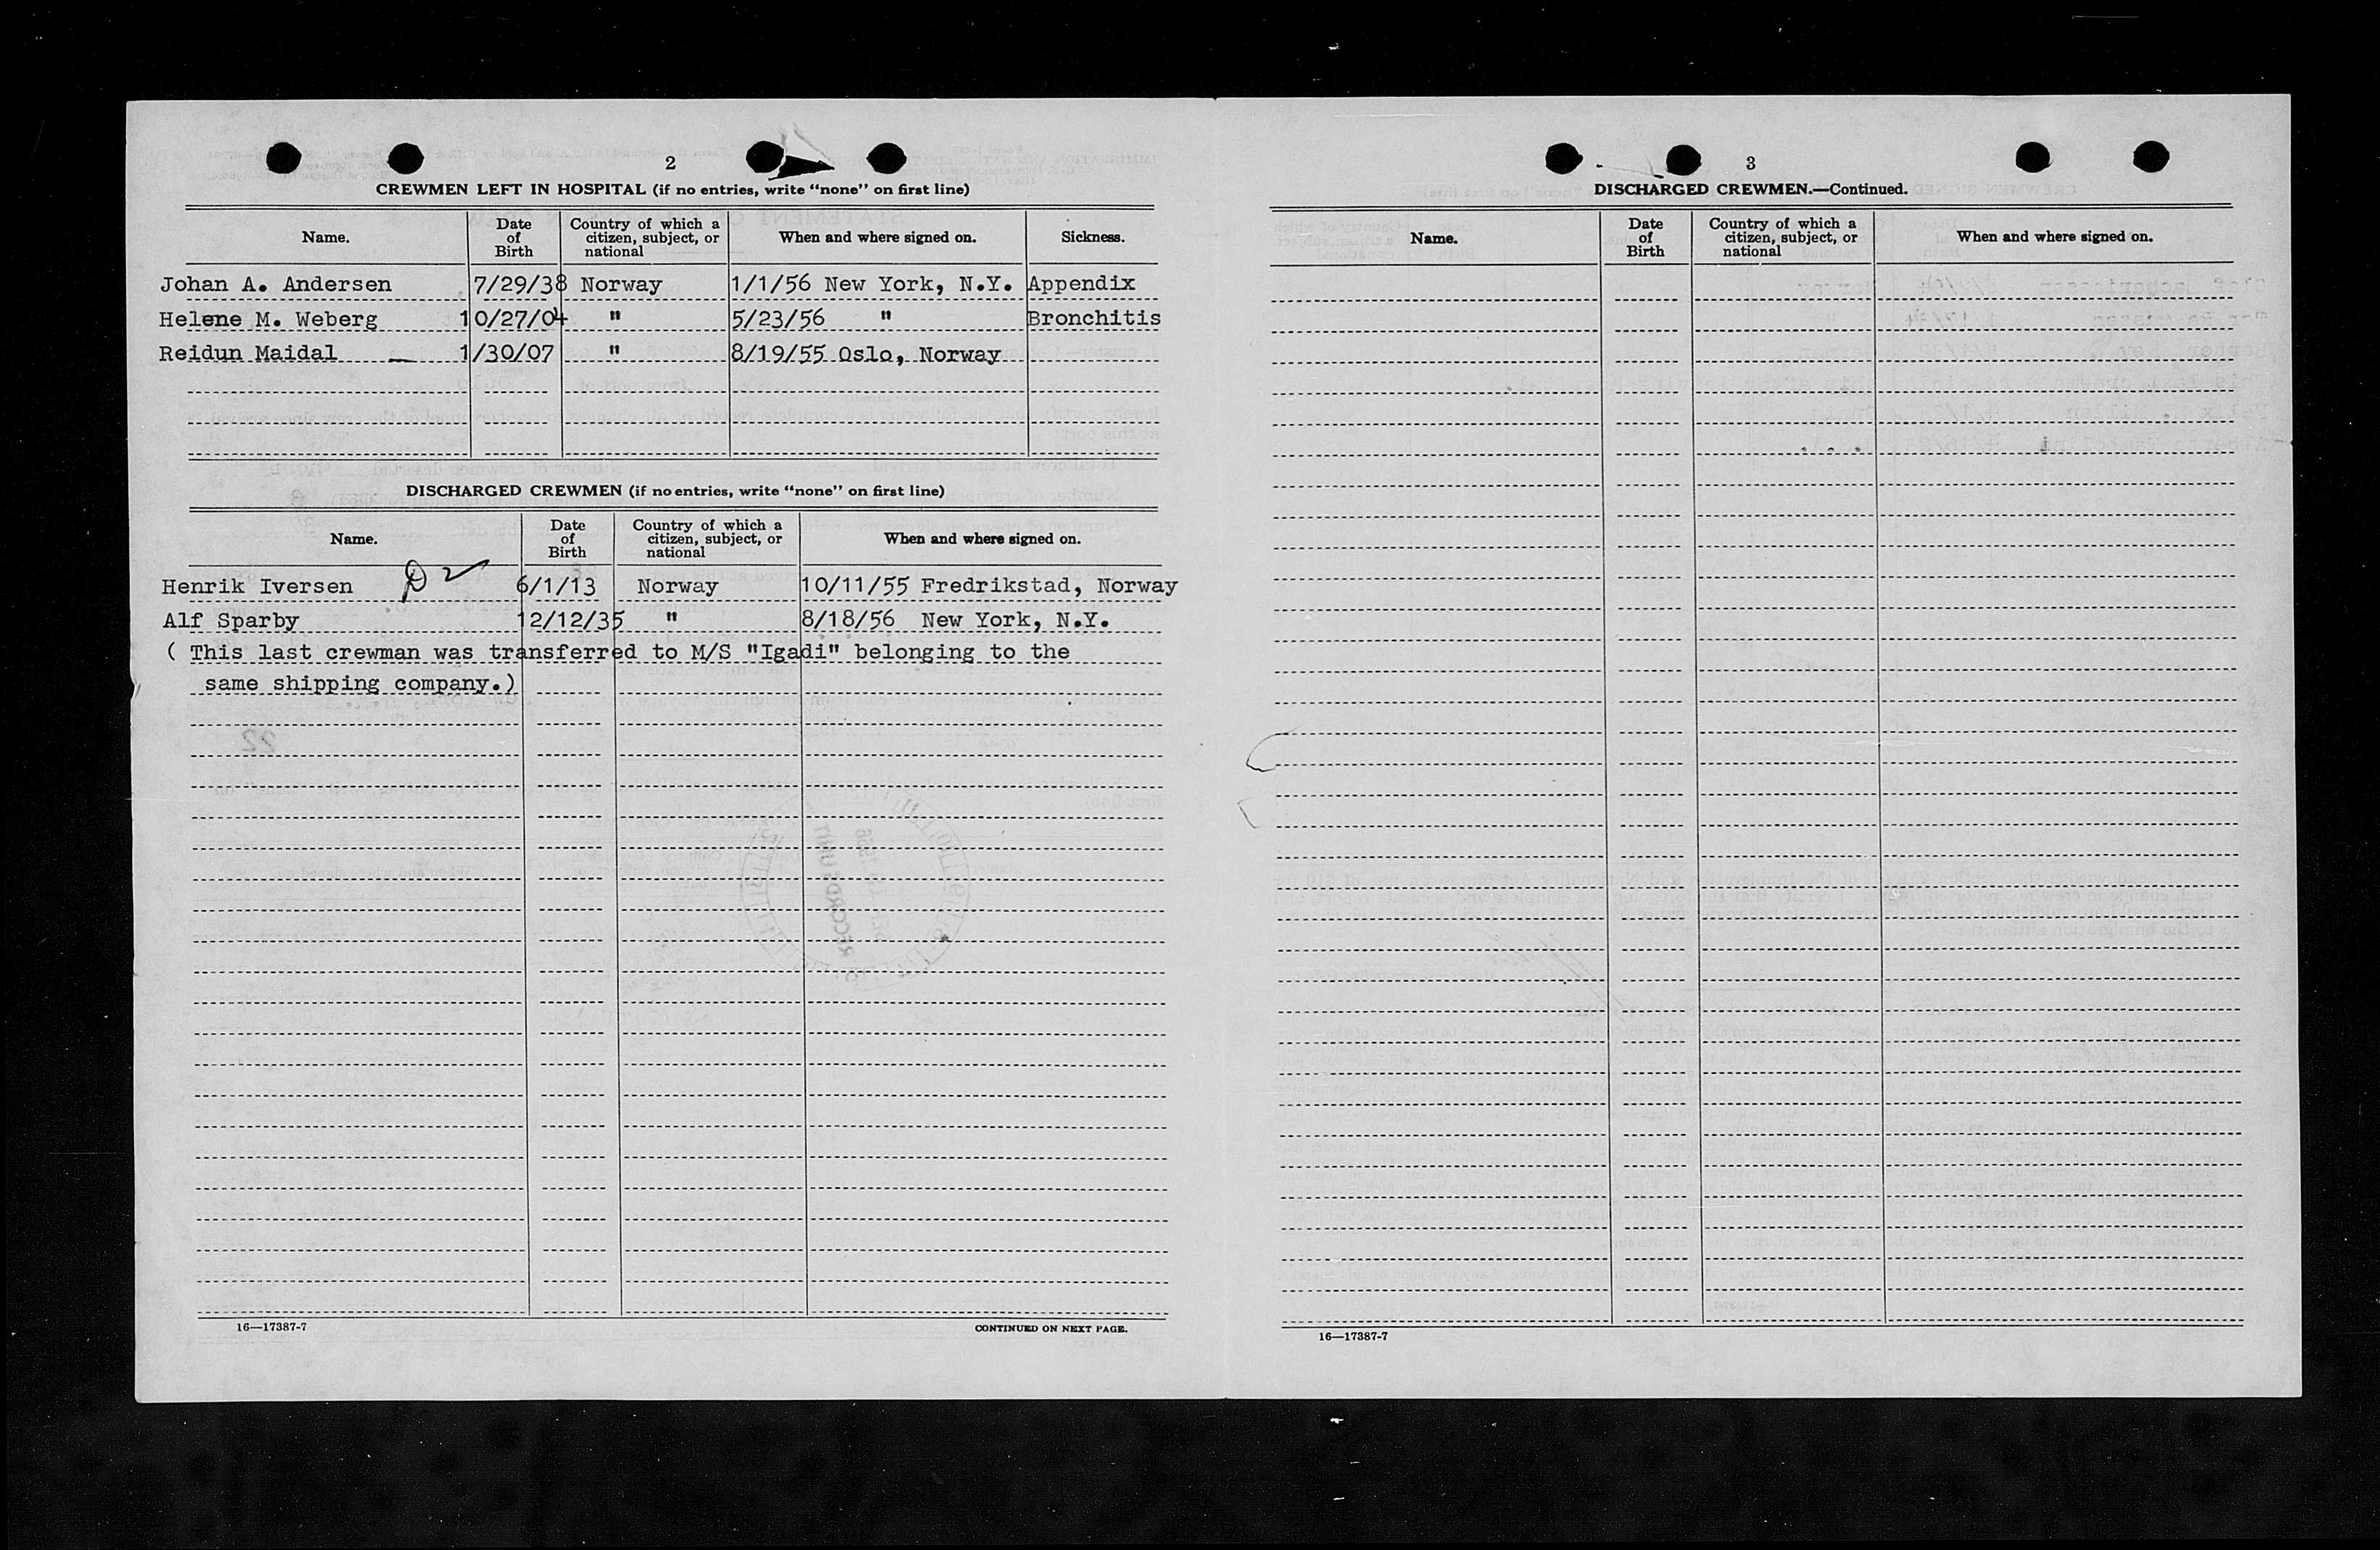 2
CREWMEN LEFT IN HOSPITAL (if no entries, write "none" on first line)
Name. Date of Birth Country of which a citizen, subject, or national When and where signed on. Sickness.
Johan A. Andersen 7/29/38 Norway 1/1/56 New York, N.Y. Appendix
Helene M. Weberg 10/27/04 " 5/23/56 " Bronchitis
Reidun Maidal — 1/30/07 " 8/19/55 Oslo, Norway
DISCHARGED CREWMEN (if no entries, write "none" on first line)
Name. Date of Birth Country of which a citizen, subject, or national When and where signed on.
Henrik Iversen 6/1/13 Norway 10/11/55 Fredrikstad, Norway
Alf Sparby 12/12/35 " 8/18/56 New York, N.Y.
( This last crewman was transferred to M/S "Igadi" belonging to the
same shipping company.)
16—17387-7 CONTINUED ON NEXT PAGE.
3
DISCHARGED CREWMEN.—Continued.
Name. Date of Birth Country of which a citizen, subject, or national When and where signed on.
16—17387-7